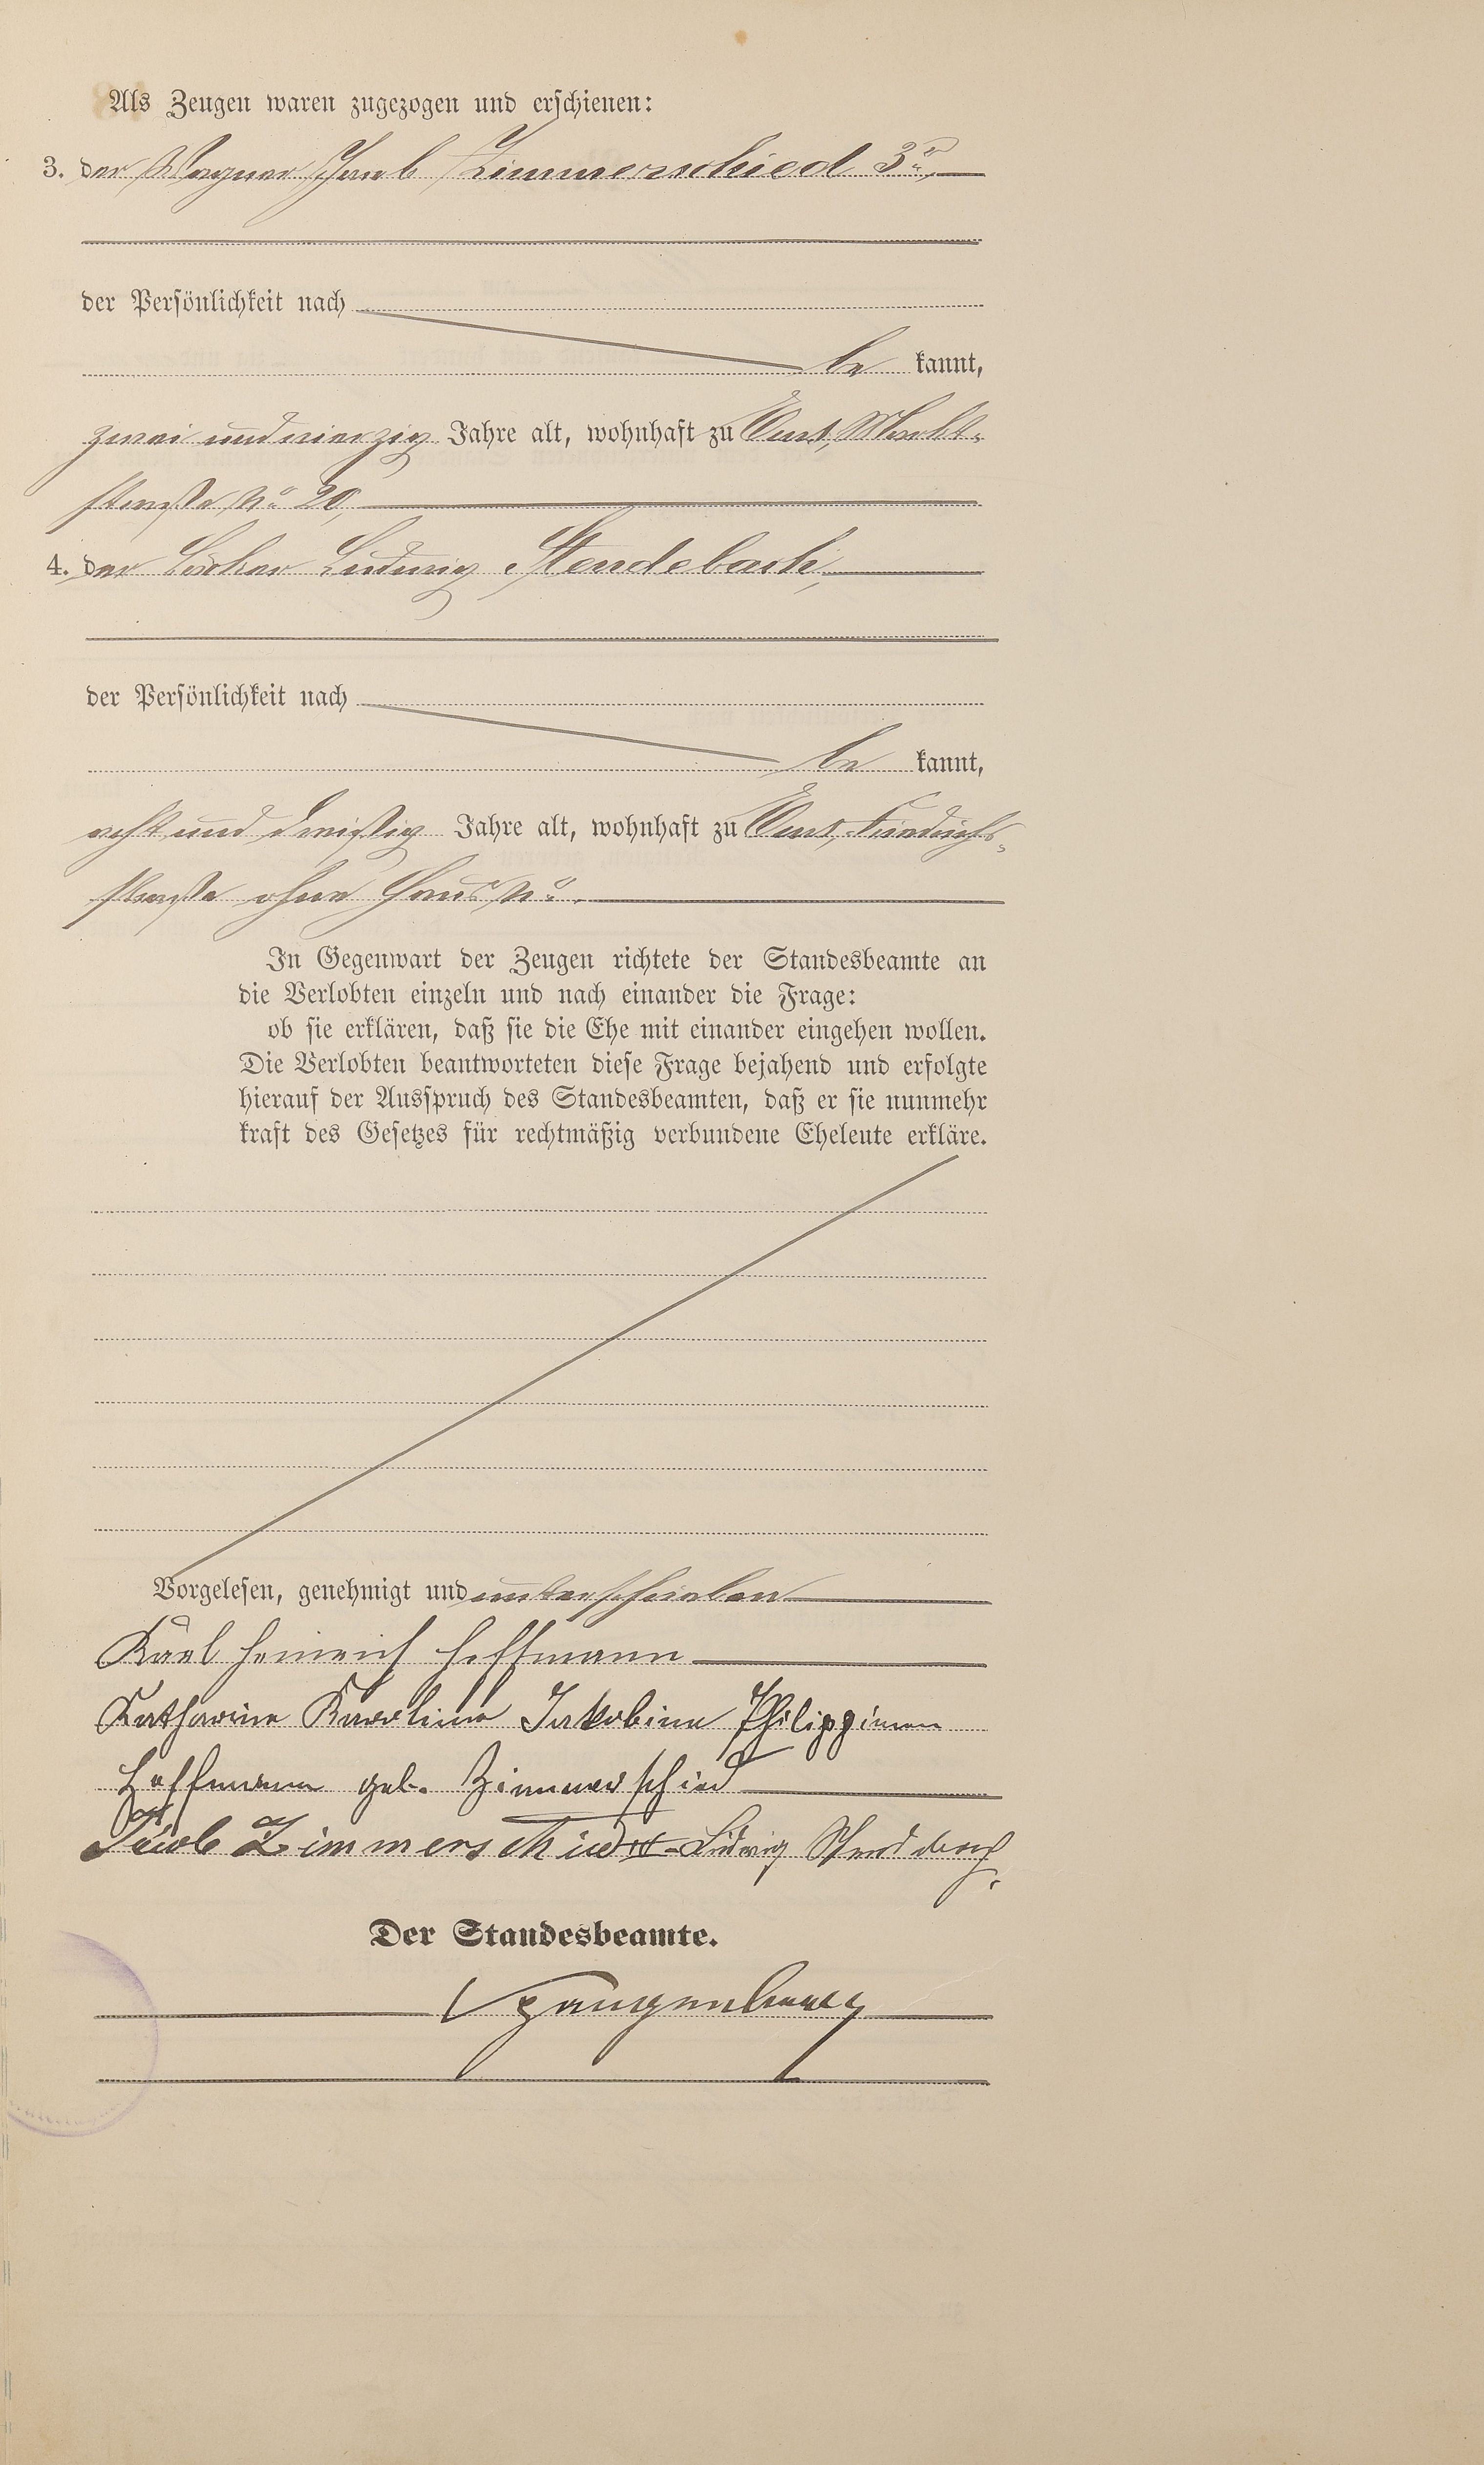 Als Zeugen waren zugezogen und erschienen:
3. der Wagner Jacob Zimmerschied 3r,
der Persönlichkeit nach
be kannt,
zwei und vierzig Jahre alt, wohnhaft zu Ems, Markt-
straße No 20,
4. der Ludwig Stendebach,
der Persönlichkeit nach
be kannt,
acht und dreißig Jahre alt, wohnhaft zu Ems, Friedrichs-
straße ohne Haus No.
In Gegenwart der Zeugen richtete der Standesbeamte an
die Verlobten einzeln und nach einander die Frage:
ob sie erklären, daß sie die Ehe mit einander eingehen wollen.
Die Verlobten beantworteten diese Frage bejahend und erfolgte
hierauf der Ausspruch des Standesbeamten, daß er sie nunmehr
kraft des Gesetzes für rechtmäßig verbundene Eheleute erkläre.
Vorgelesen, genehmigt und unterschrieben
Karl Heinrich Hoffmann
Katharine Karoline Jakobine Philippinen
Hoffmann geb. Zimmerschied
Jacob Zimmerschied III Ludwig Stendebach.
Der Standesbeamte.
Spangenberg